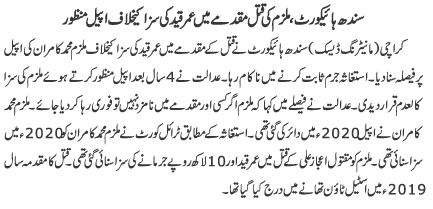 سندھ ہائیکورٹ، ملزم کی قتل مقدمے میں عمر قید کی سزا کیخلاف اپیل منظور
کراچی (مانیٹرنگ ڈیسک) سندھ ہائیکورٹ نے قتل کے مقدمے میں عمر قید کی سزا کیخلاف ملزم محمد کامران کی اپیل
پر فیصلہ سنا دیا۔ استغاثہ جرم ثابت کرنے میں ناکام رہا۔ عدالت نے 4 سال بعد اپیل منظور کرتے ہوئے ملزم کی سزا
کالعدم قرار دیدی۔ عدالت نے فیصلے میں کہا کہ ملزم اگر کسی اور مقدمے میں نامزد نہیں تو فوری رہا کر دیا جائے۔ ملزم محمد
کامران نے اپیل 2020ء میں دائر کی گئی تھی۔ استغاثہ کے مطابق ٹرائل کورٹ نے ملزم محمد کامران کو 2020ء میں
سزا سنائی تھی۔ ملزم کو مقتول اعجاز علی کے قتل میں عمر قید اور 10 لاکھ روپے جرمانے کی سزا سنائی گئی تھی۔ قتل کا مقدمہ سال
2019ء میں اسٹیل ٹاؤن تھانے میں درج کیا گیا تھا۔